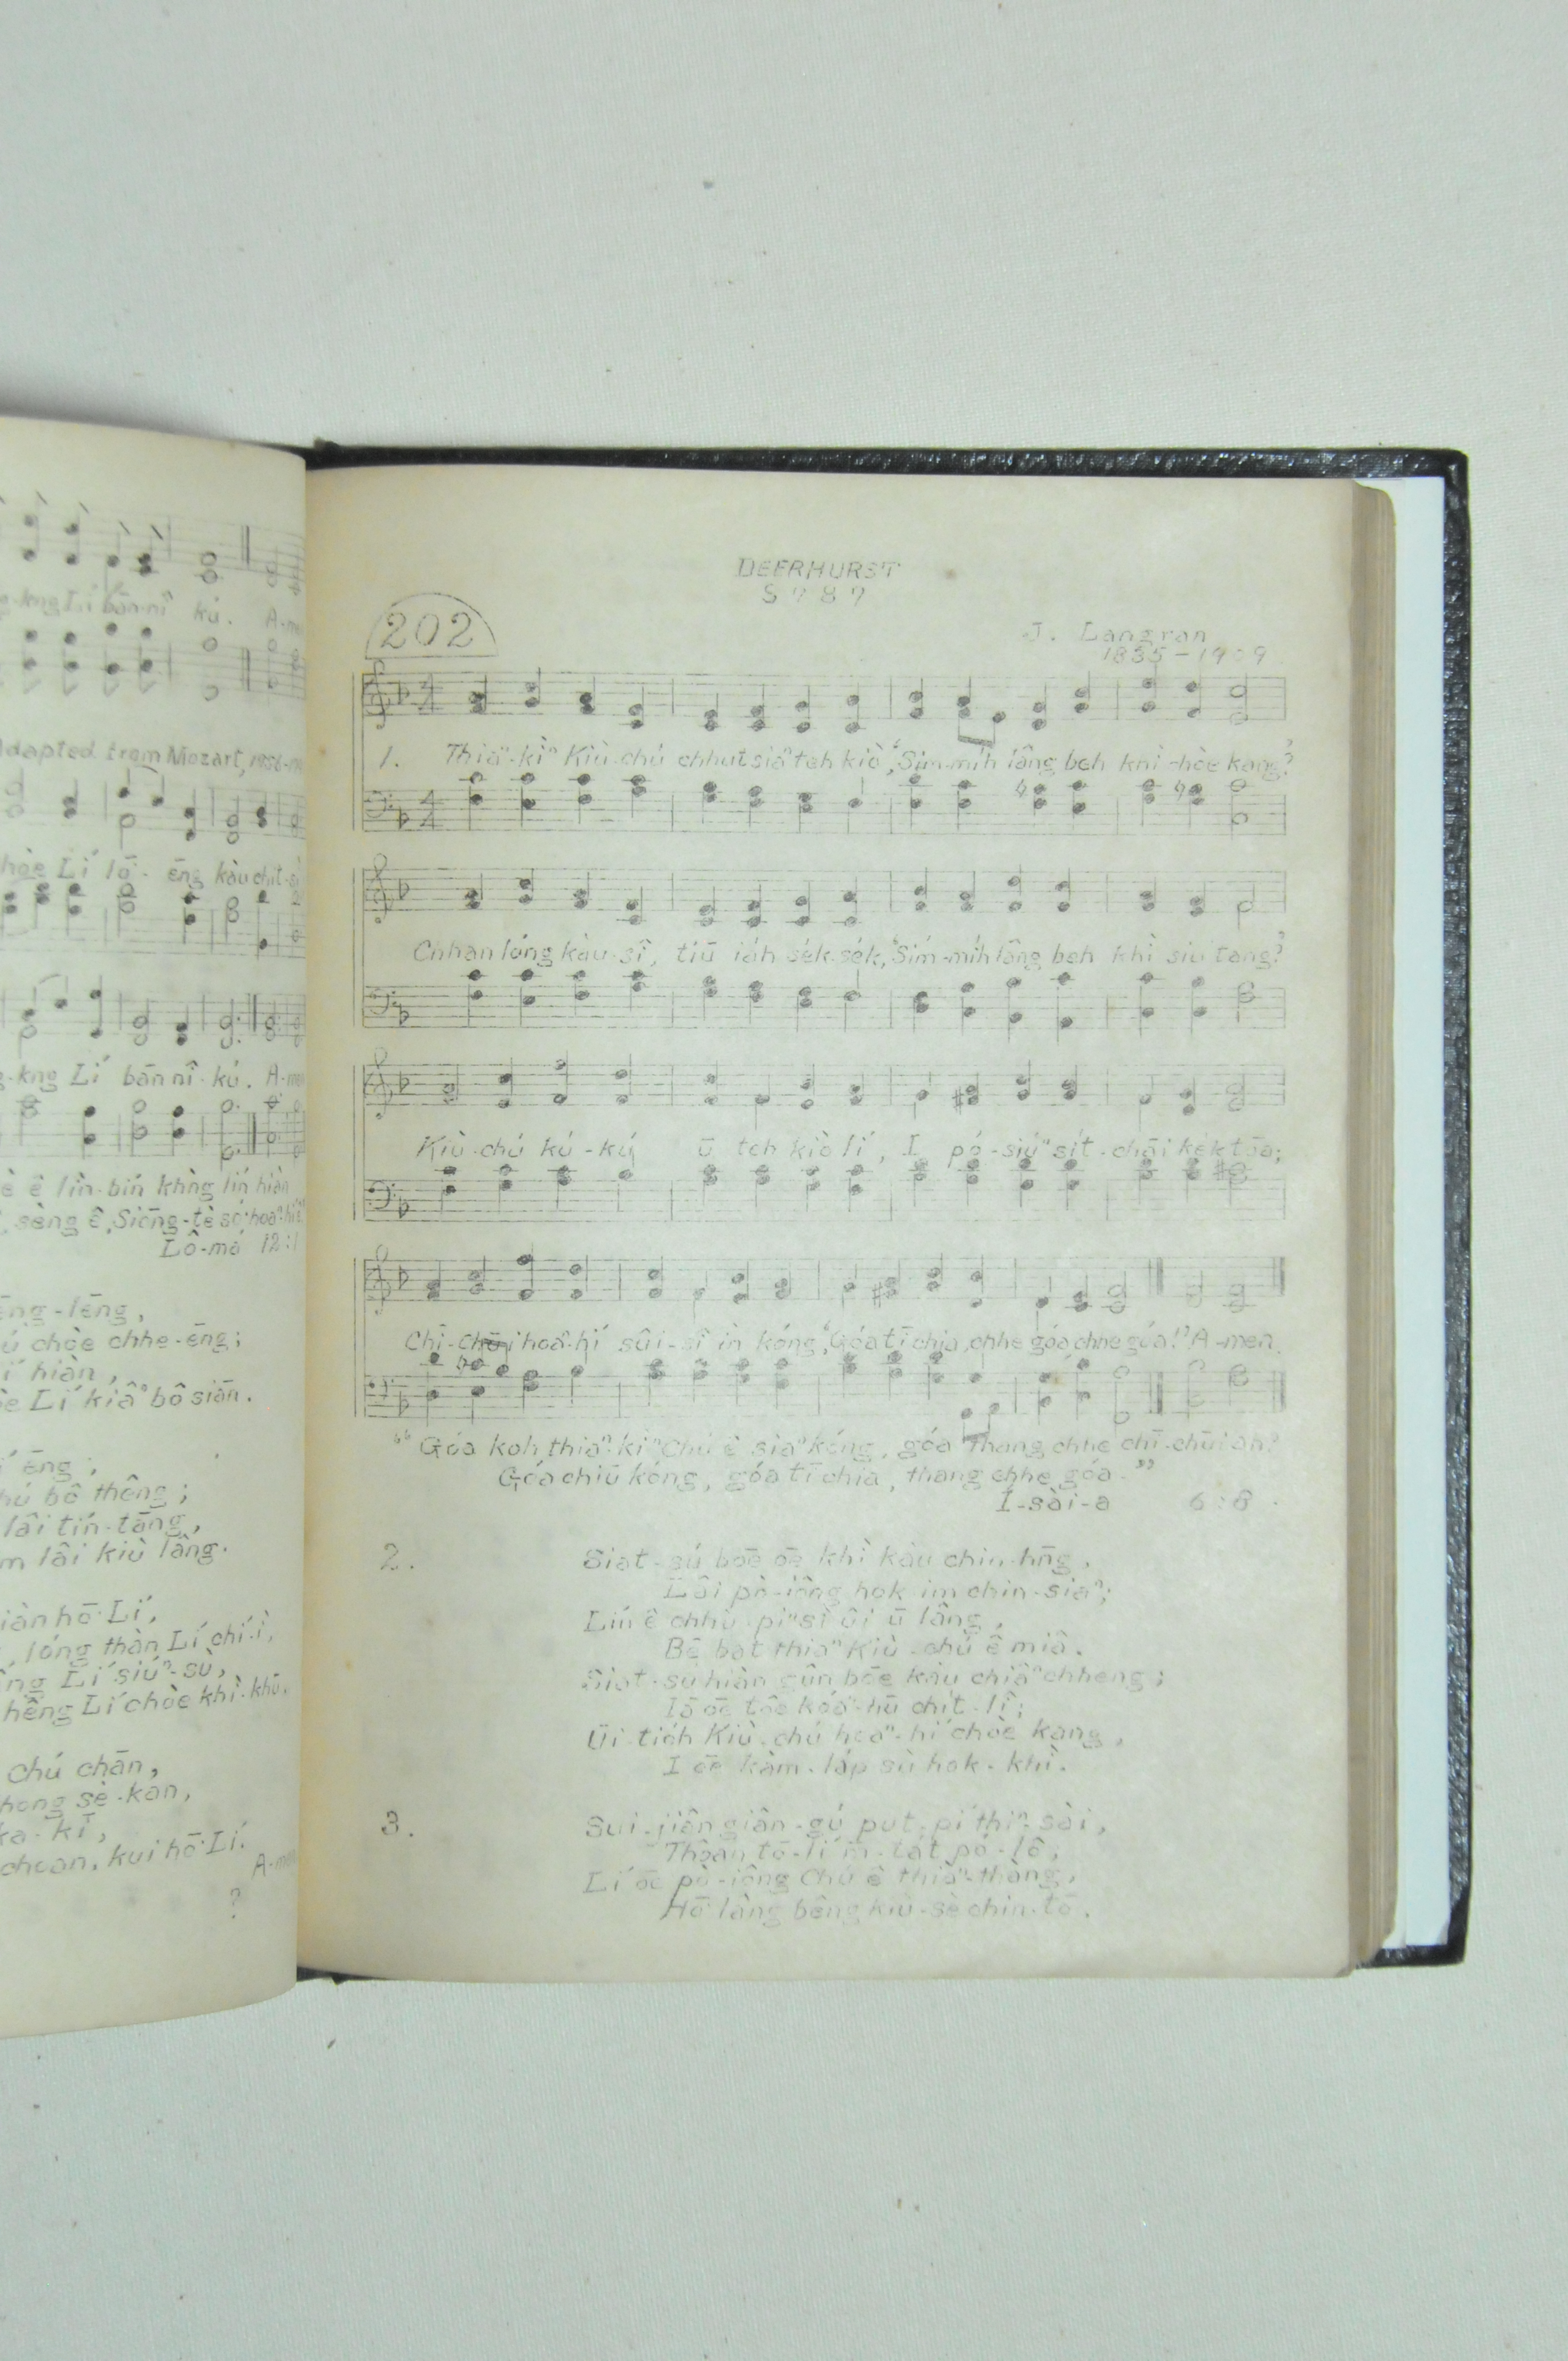 g-kng Lí bān-nî kú. A-me
Adapted from Mozart,
hòe Lí lō͘- ēng kàu chit-sì
g-kng Lí bān nî-kú. A-men
è ê lîn-bín khǹg lín hiàn
sèng ê, Siōng-tè só͘ hoaⁿ-hí
Lô-má 12:1
ēng-lēng,
ú chòe chhe-ēng;
í hiàn,
òe Lí kiâⁿ bô siān.
í ēng,
hú bô thêng;
lâi tín-tāng,
m lâi kiù lâng.
iàn hō͘ Lí,
, lóng thàn Lí chí-ì,
ng Lí siúⁿ-sù,
hêng Lí chòe khì-khū.
chú chān,
hong sè-kan,
ka-kī,
choan, kui hō͘ Lí.
A-men
?
DEERHURST
8787
202
J. Langran
1835-1909
1. Thiaⁿ-kìⁿ Kiù-chú chhut siaⁿ teh kiò, "Sím-míh lâng beh khì chòe kang?"
Chhan lóng kàu-sî, tiū iáh sék-sék, "Sím-míh lâng beh khì siu tang?"
Kiù-chú kú-kú ū teh kiò lí, I pó-siúⁿ sít-chāi kèk tōa;
Chī-chūi hoaⁿ-hí sûi-sî ìn kóng, "Góa tī chia, chhe góa chhe góa!" A-men.
"Góa koh thiaⁿ-kìⁿ Chú ê siaⁿ kóng, góa thang chhe chī-chūi ah?
Góa chiū kóng, góa tī chia, thang chhe góa."
Í-sài-a 6:8.
2. Siat-sú bōe ōe khì kàu chin-hn̄g,
Lâi pò-iông hok-im chin-siaⁿ;
Lín ê chhù-piⁿ sì-ûi ū lâng,
Bē bat thiaⁿ Kiù-chú ê miâ.
Siat-sú hiàn gûn bōe kàu chiâⁿ chheng;
Iā ōe tòe kóaⁿ-hū chit-lî;
Ūi-tióh Kiù-chú hoaⁿ-hí chòe kang,
I ōe kàm-láp sù hok-khì.
3. Sui-jiân giân-gú put-pí thiⁿ-sài,
Thoân tō-lí m̄-tát Pó-lô;
Lí ōe pò-iông Chú ê thiàⁿ-thàng,
Hō͘ lâng bêng kiù-sè chin-tō.